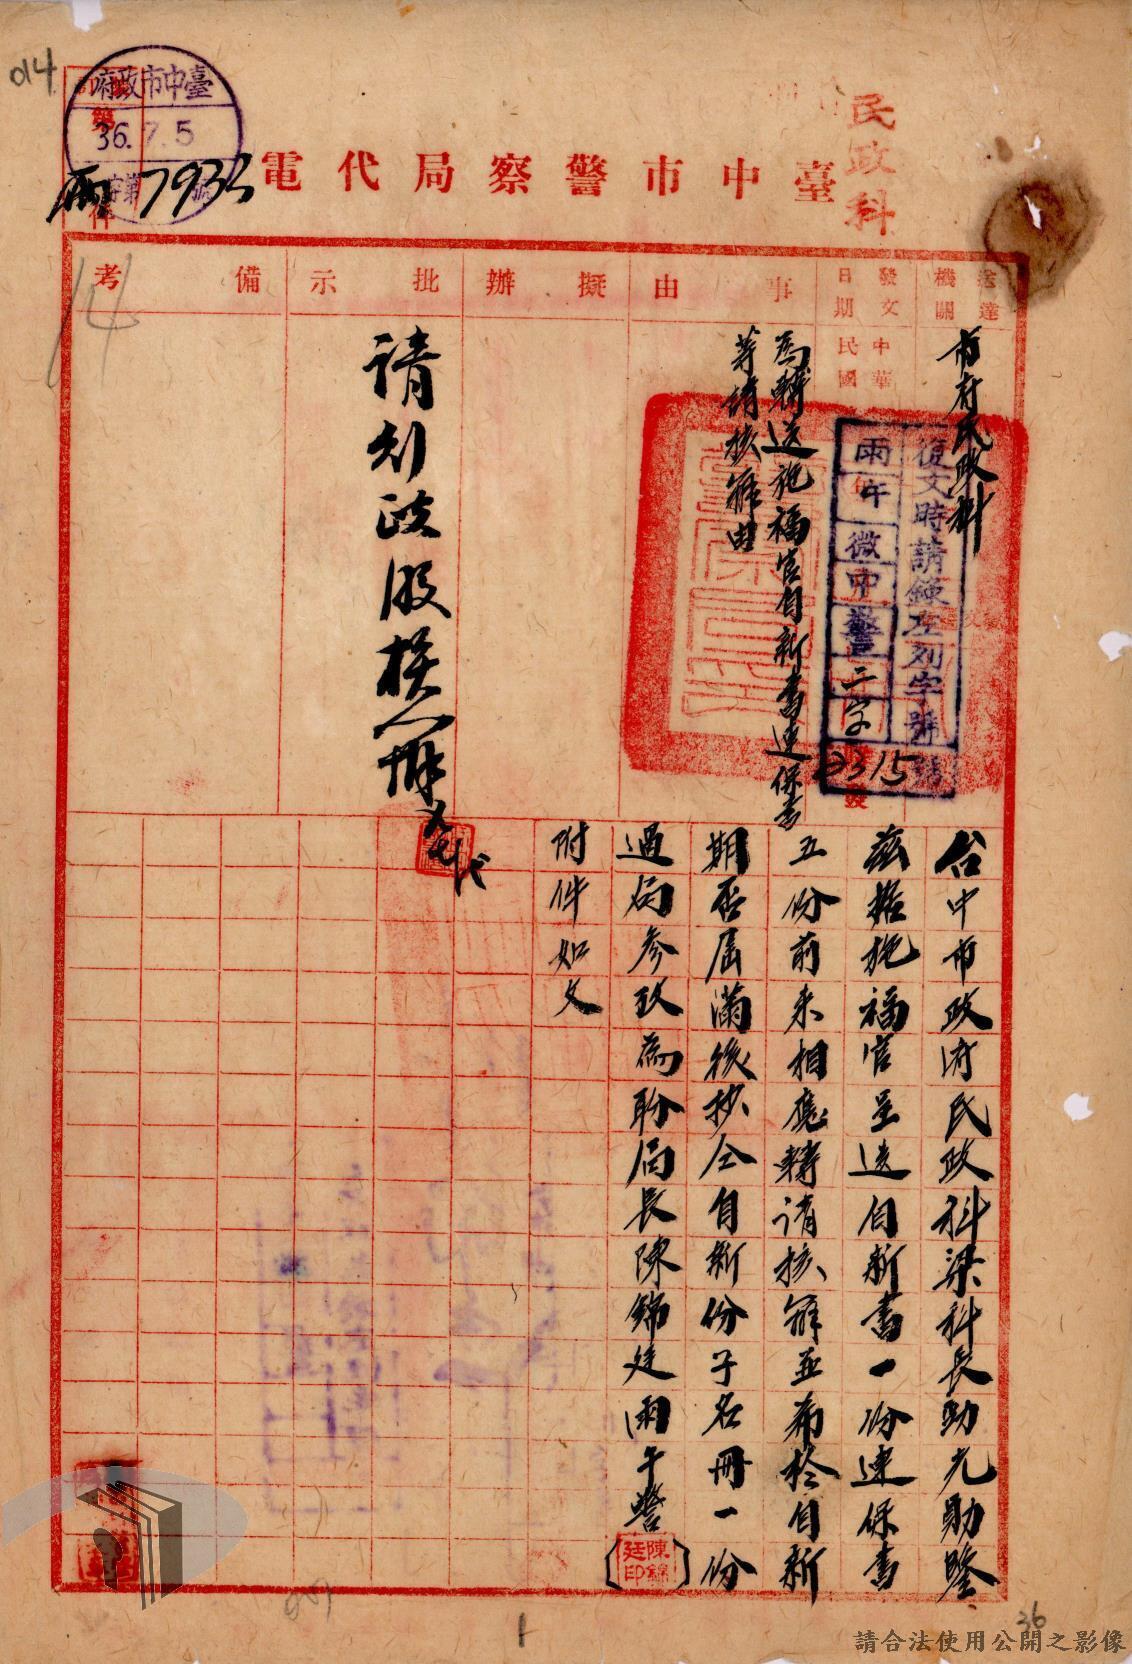 014
臺中市政府
36.7.5
7933
民政科
臺中市警察局代電
送達機關
市府民政科
發文日期
中華民國
復文時請錄左列字號
雨午微中警二字
2315
事由
為轉送施福官自新書連保書
等請核辦由
擬辦
批示
請列政股模人辦
代
備考
14
台中市政府民政科梁科長勛光勛鑒
茲據施福官呈送自新書一份連保書
五份前來相應轉請核辦並希於自新
期否屆滿後抄全自新份子名冊一份
過局參改為盼局長陳錦廷雨午警
陳錦廷印
附件如文
1
36
請合法使用公開之影像